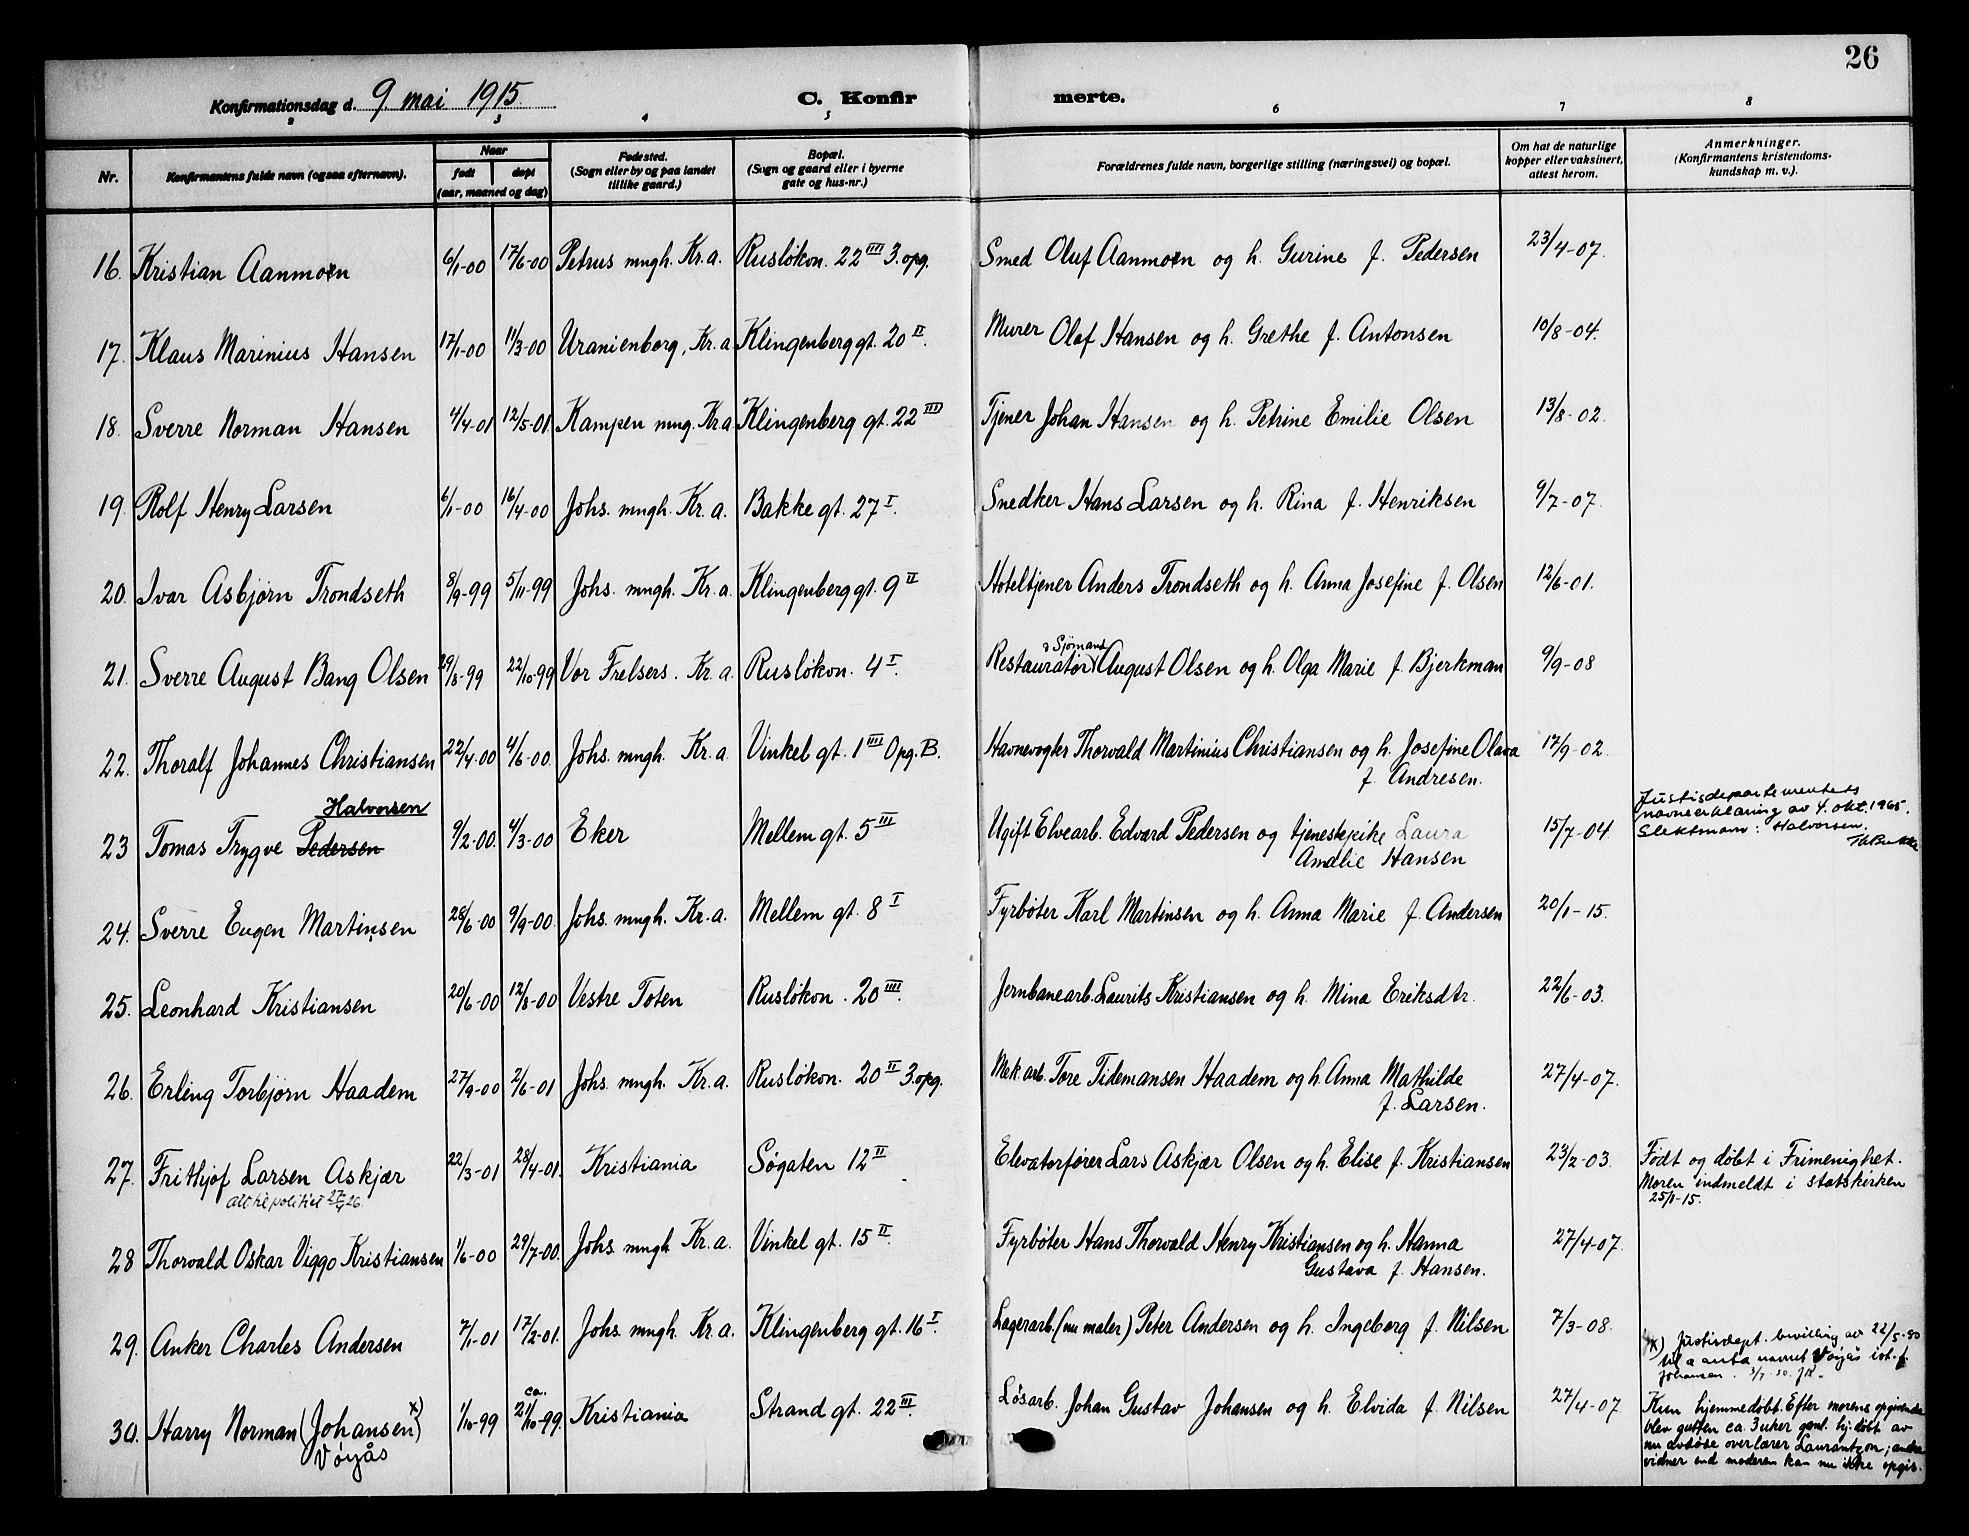 26
Konfirmationsdag d. 9 mai 1915. C. Konfirmerte.
2 3 4 5 6 7 8
Nr. Konfirmantens fulde navn (ogsaa efternavn). Naar født døpt (aar, maaned og dag) Fødested. (Sogn eller by og paa landet tillike gaard.) Bopæl. (Sogn og gaard eller i byerne gate og hus-nr.) Forældrenes fulde navn, borgerlige stilling (næringsvei) og bopæl. Om hat de naturlige kopper eller vaksinert, attest herom. Anmerkninger. (Konfirmantens kristendomskundskap m. v.).
16. Kristian Aanmoen 6/1-00 17/6-00 Petrus mngh. Kr.a. Rusløkvn. 22 IIII 3. opg. Smed Oluf Aanmoen og h. Gurine f. Pedersen 23/4-07.
17. Klaus Marinius Hansen 17/1-00 11/3-00 Uranienborg, Kr.a Klingenberg gt. 20 II. Murer Olaf Hansen og h. Grethe f. Antonsen 10/8-04.
18. Sverre Norman Hansen 4/4-01 12/5-01 Kampen mng. Kr.a. Klingenberg gt. 22 III Tjener Johan Hansen og h. Petrine Emilie Olsen 13/8-02.
19. Rolf Henry Larsen 6/1-00 16/4-00 Johs. mngh. Kr.a. Bakke gt. 27 I. Snedker Hans Larsen og h. Rina f. Henriksen 9/7-07.
20. Ivar Asbjørn Trondseth 8/9-99 5/11-99 Johs. mngh. Kr.a. Klingenberg gt. 9 II Hoteltjener Anders Trondseth og h. Anna Josefine f. Olsen 12/6-01.
& Sjømand
21. Sverre August Bang Olsen 29/8-99 22/10-99 Vor Frelsers. Kr.a. Rusløkvn. 4 I. Restauratør August Olsen og h. Olga Marie f. Bjerkman 9/9-08
22. Thoralf Johannes Christiansen 22/4-00 4/6-00. Johs. mngh. Kr.a. Vinkel gt. 1 III Opg. B. Havnevogter Thorvald Martinius Christiansen og h. Josefine Olava 17/9-02.
f. Andresen.
Halvorsen
23 Tomas Trygve Pedersen 9/2-00. 4/3-00 Eker Mellem gt. 5 III Ugift Elvearb. Edvard Pedersen og tjenestepike Laura 15/7-04
Amalie Hansen
Justisdepartementets
navneerklæring av 4. okt. 1965.
Slektsnavn: Halvorsen.
24. Sverre Eugen Martinsen 28/6-00 9/9-00. Johs. mngh. Kr.a. Mellem gt. 8 I Fyrbøter Karl Martinsen og h. Anna Marie f. Andersen 20/1-15.
25. Leonhard Kristiansen 20/6-00 12/8-00 Vestre Toten Rusløkvn. 20 IIII. Jernbanearb. Laurits Kristiansen og h. Mina Eriksdtr. 22/6-03.
26. Erling Torbjørn Haadem 27/9-00 2/6-01 Johs. mngh. Kr.a. Rusløkvn. 20 II 3. opg. Mek. arb. Tore Tidemansen Haadem og h. Anna Mathilde 27/4-07.
f. Larsen.
27. Frithjof Larsen Askjær 22/3-01 28/4-01. Kristiania Søgaten 12 II Elevatorfører Lars Askjær Olsen og h. Elise f. Kristiansen 23/2-03. Født og døbt i Frimenighet.
Moren indmeldt i statskirken
25/1-15.
att. til politiet
28 Thorvald Oskar Viggo Kristiansen 1/6-00 29/7-00. Johs. mngh Kr.a. Vinkel gt. 15 II. Fyrbøter Hans Thorvald Henry Kristiansen og h. Hanna 27/4-07.
Gustava f. Hansen.
29. Anker Charles Andersen 7/1-01 17/2-01. Johs. mngh. Kr.a. Klingenberg gt. 16 I. Lagerarb. (nu maler) Peter Andersen og h. Ingeborg f. Nilsen 7/3-08.
x) Justisdept. bevilling av 22/5-30
til å anta navnet Vøyås ist. f.
Johansen.
30. Harry Norman (Johansen x)) 1/10-99 ca. 21/10-99. Kristiania Strand gt. 22 III. Løsarb. Johan Gustav Johansen og h. Elvida f. Nilsen 27/4-07
Vøyås
Kun hjemmedøbt. Efter morens opgivende
blev gutten ca. 3 uker gml. hj. døbt av
nu avdøde overlærer Laurantzon; andre
vidner end moderen kan nu ikke opgis.